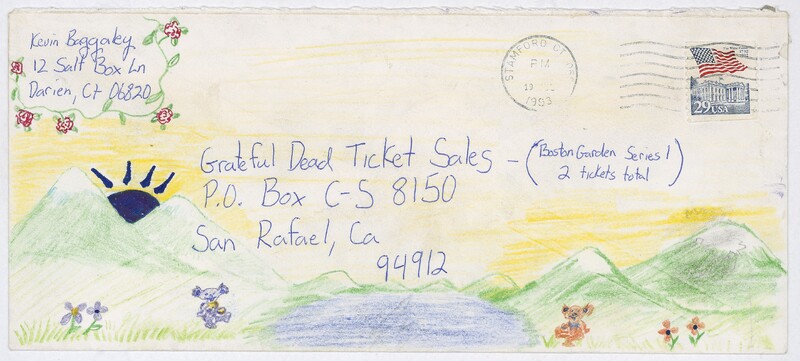 Kevin Baggaley
12 Salt Box Ln
Darien, Ct 06820
STAMFORD CT
PM
1993
29USA
Grateful Dead Ticket Sales - (Boston Garden Series 1
2 tickets total)
P.O. Box C-S 8150
San Rafael, Ca
94912